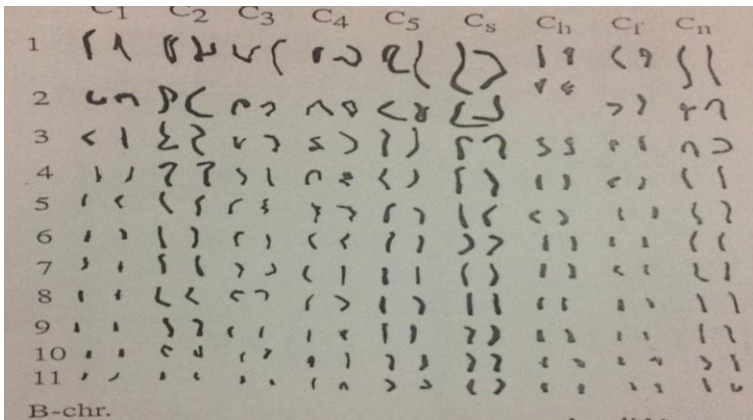 C1 C2 C3 C4 C5 Cs Ch Cf Cn
1
2
3
4
5
6
7
8
9
10
11
B-chr.